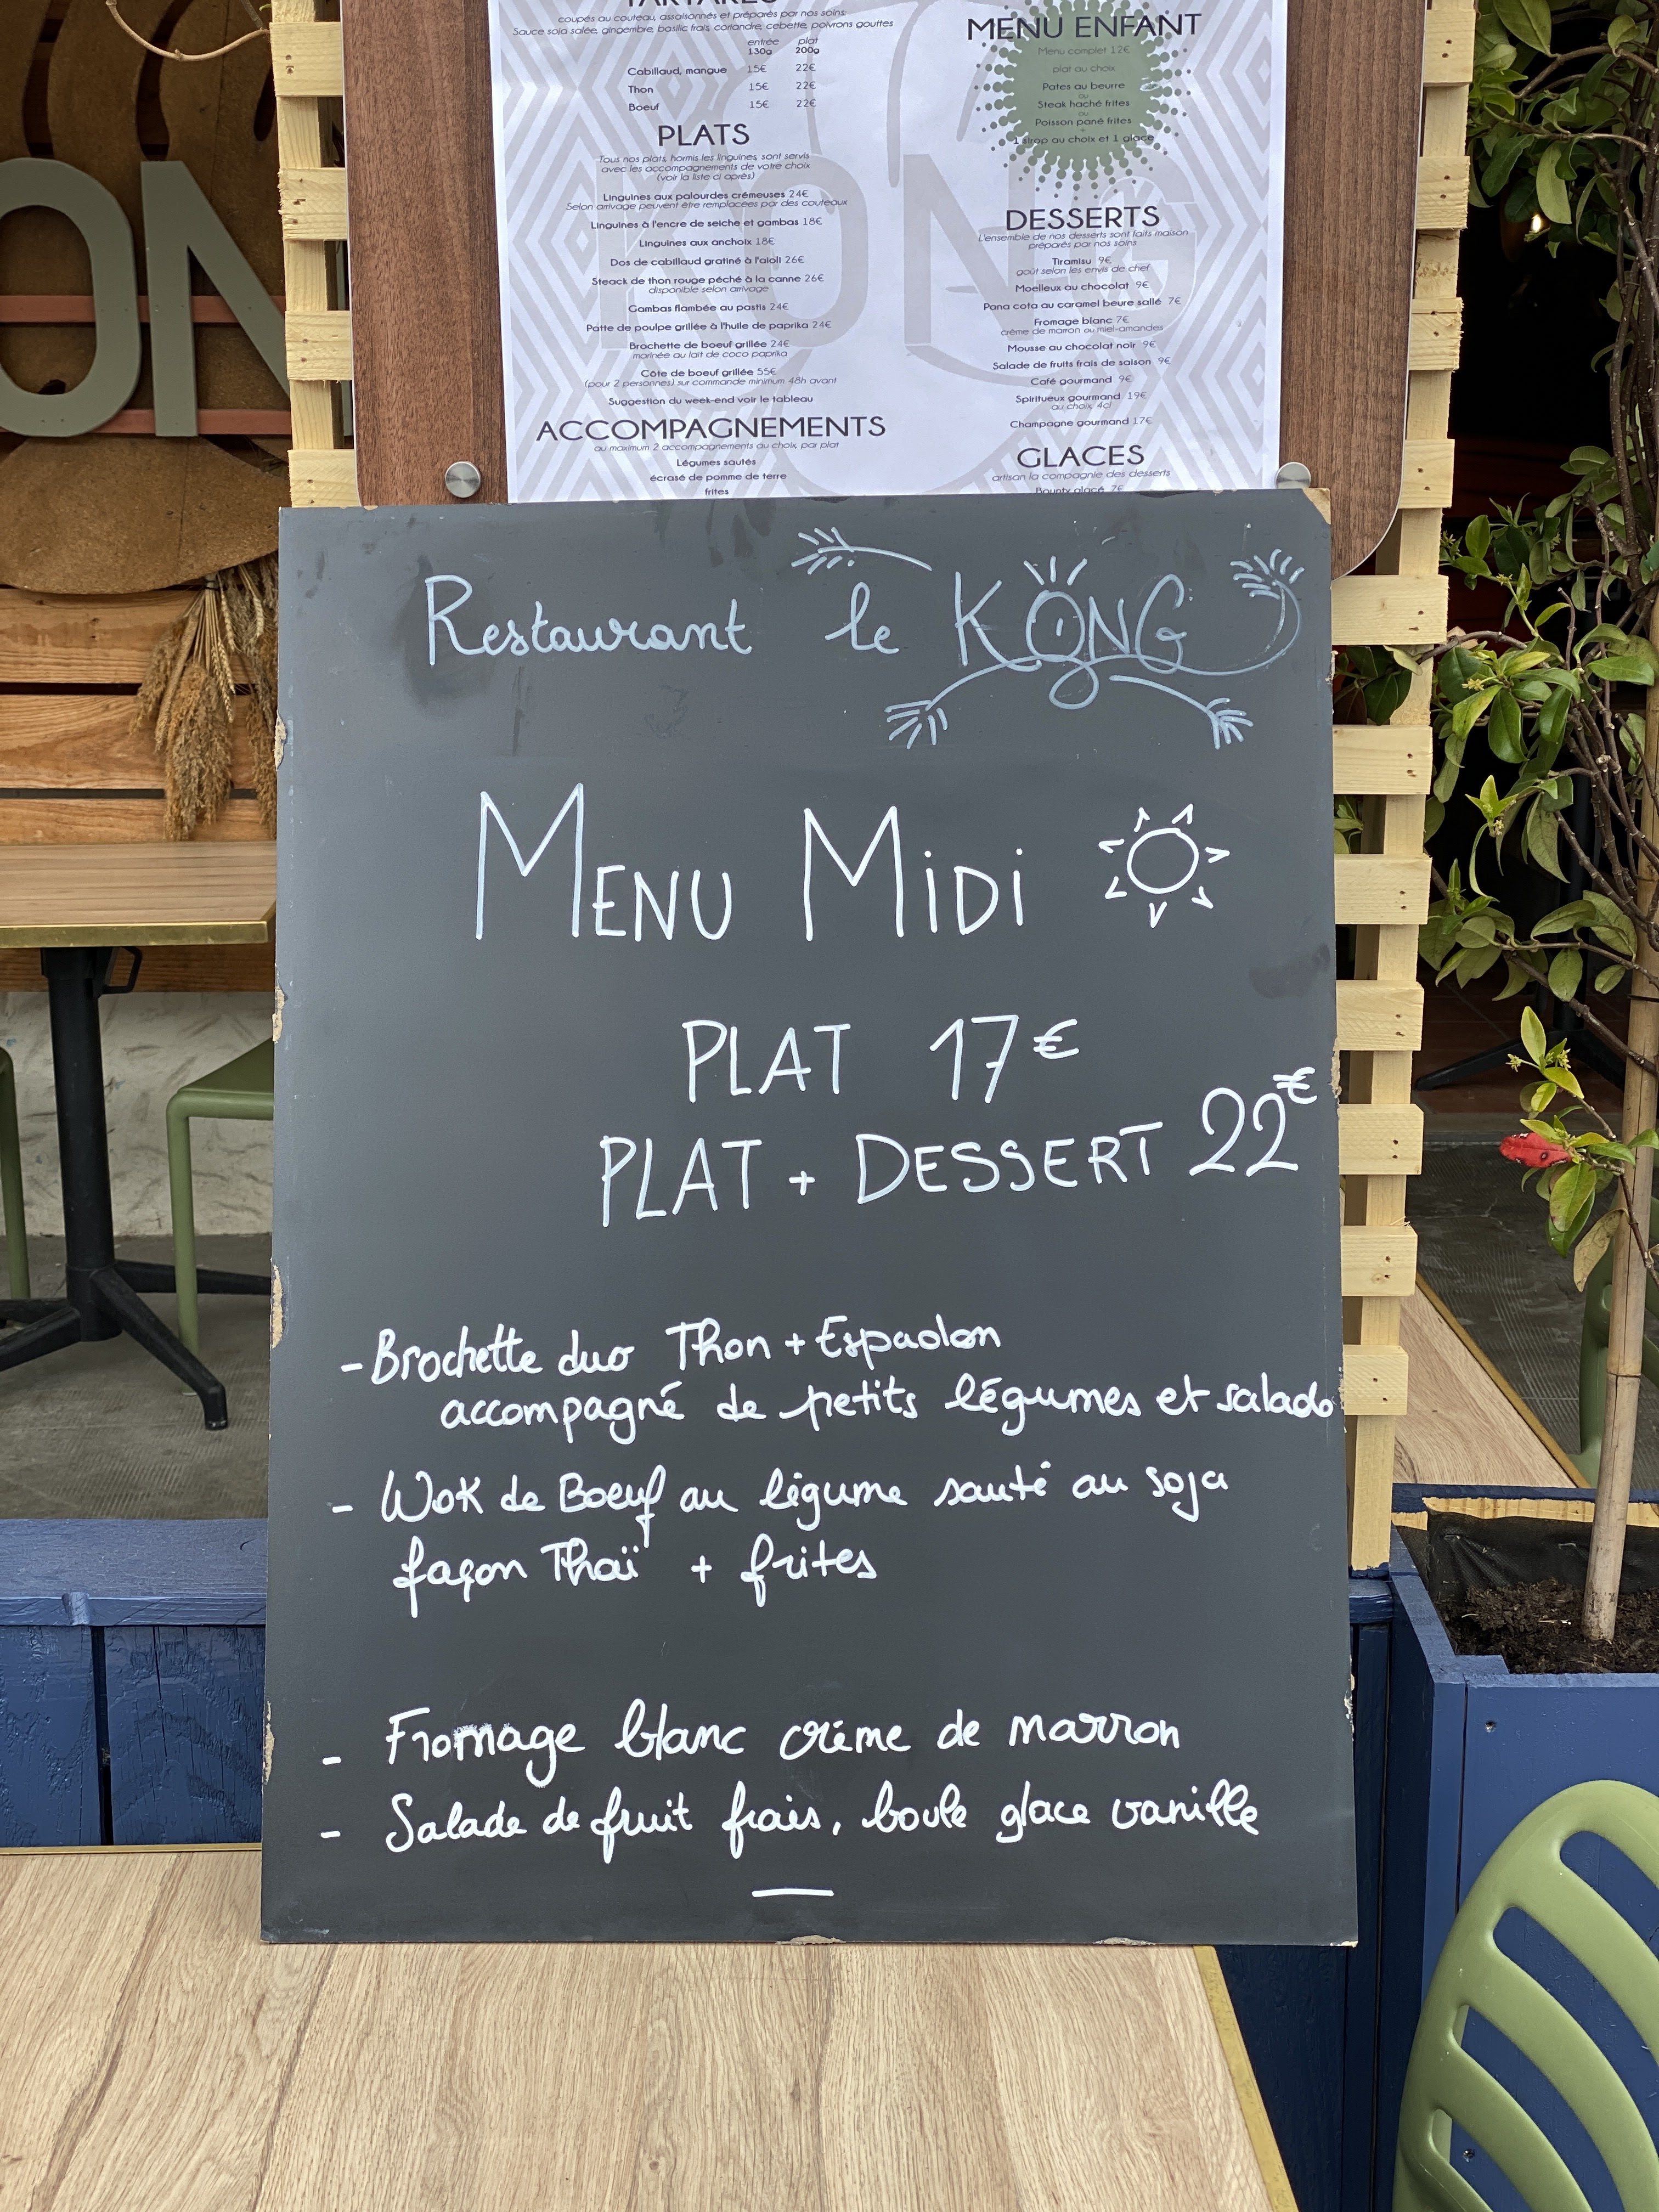 TARTARES
coupés au couteau, assaisonnés et préparés par nos soins
Sauce soja salée, gingembre, basilic frais, coriandre, cebette, poivrons gouttes
entrée plat
130g 200g
Cabillaud, mangue 15€ 22€
Thon 15€ 22€
Boeuf 15€ 22€
PLATS
Tous nos plats, hormis les linguines, sont servis
avec les accompagnements de votre choix
(voir la liste ci après)
Linguines aux palourdes crémeuses 24€
Selon arrivage peuvent être remplacées par des couteaux
Linguines à l'encre de seiche et gambas 18€
Linguines aux anchoix 18€
Dos de cabillaud gratiné à l'aïoli 26€
Steack de thon rouge péché à la canne 26€
disponible selon arrivage
Gambas flambée au pastis 24€
Patte de poulpe grillée à l'huile de paprika 24€
Brochette de boeuf grillée 24€
marinée au lait de coco paprika
Côte de boeuf grillée 55€
(pour 2 personnes) sur commande minimum 48h avant
Suggestion du week-end voir le tableau
ACCOMPAGNEMENTS
au maximum 2 accompagnements au choix, par plat
Légumes sautés
écrasé de pomme de terre
frites
MENU ENFANT
Menu complet 12€
plat au choix
Pates au beurre
ou
Steak haché frites
ou
Poisson pané frites
+
1 sirop au choix et 1 glace
DESSERTS
L'ensemble de nos desserts sont faits maison
préparés par nos soins
Tiramisu 9€
goût selon les envis de chef
Moelleux au chocolat 9€
Pana cota au caramel beure sallé 7€
Fromage blanc 7€
crème de marron ou miel-amandes
Mousse au chocolat noir 9€
Salade de fruits frais de saison 9€
Café gourmand 9€
Spiritueux gourmand 19€
au choix, 4cl
Champagne gourmand 17€
GLACES
artisan la compagnie des desserts
Bounty glacé 7€
KONG
ON
Restaurant le KONG
MENU MiDi
PLAT 17€
PLAT + DESSERT 22€
- Brochette duo Thon + Espadon
accompagné de petits légumes et salade
- Wok de Boeuf au légume sauté au soja
façon Thaï + frites
- Fromage blanc crème de marron
- Salade de fruit frais, boule glace vanille